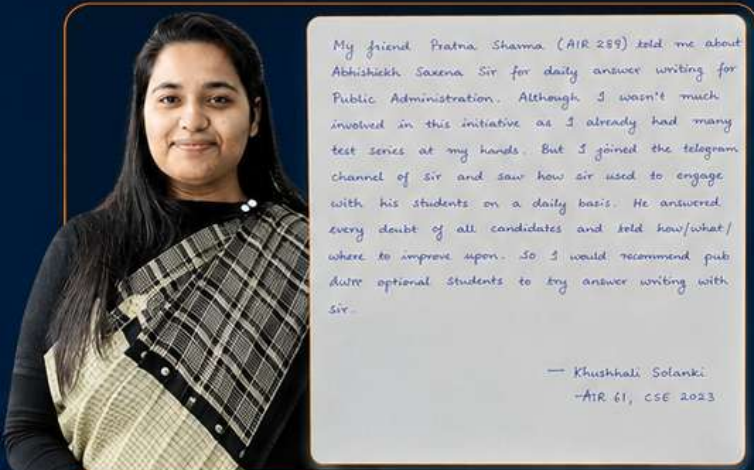 My friend Pratna Sharma (AIR 289) told me about
Abhishiekh Saxena Sir for daily answer writing for
Public Administration. Although I wasn't much
involved in this initiative as I already had many
test series at my hands. But I joined the telegram
channel of sir and saw how sir used to engage
with his students on a daily basis. He answered
every doubt of all candidates and told how/what/
where to improve upon. So I would recommend pub
optional students to try answer writing with
sir.
— Khushhali Solanki
-AIR 61, CSE 2023